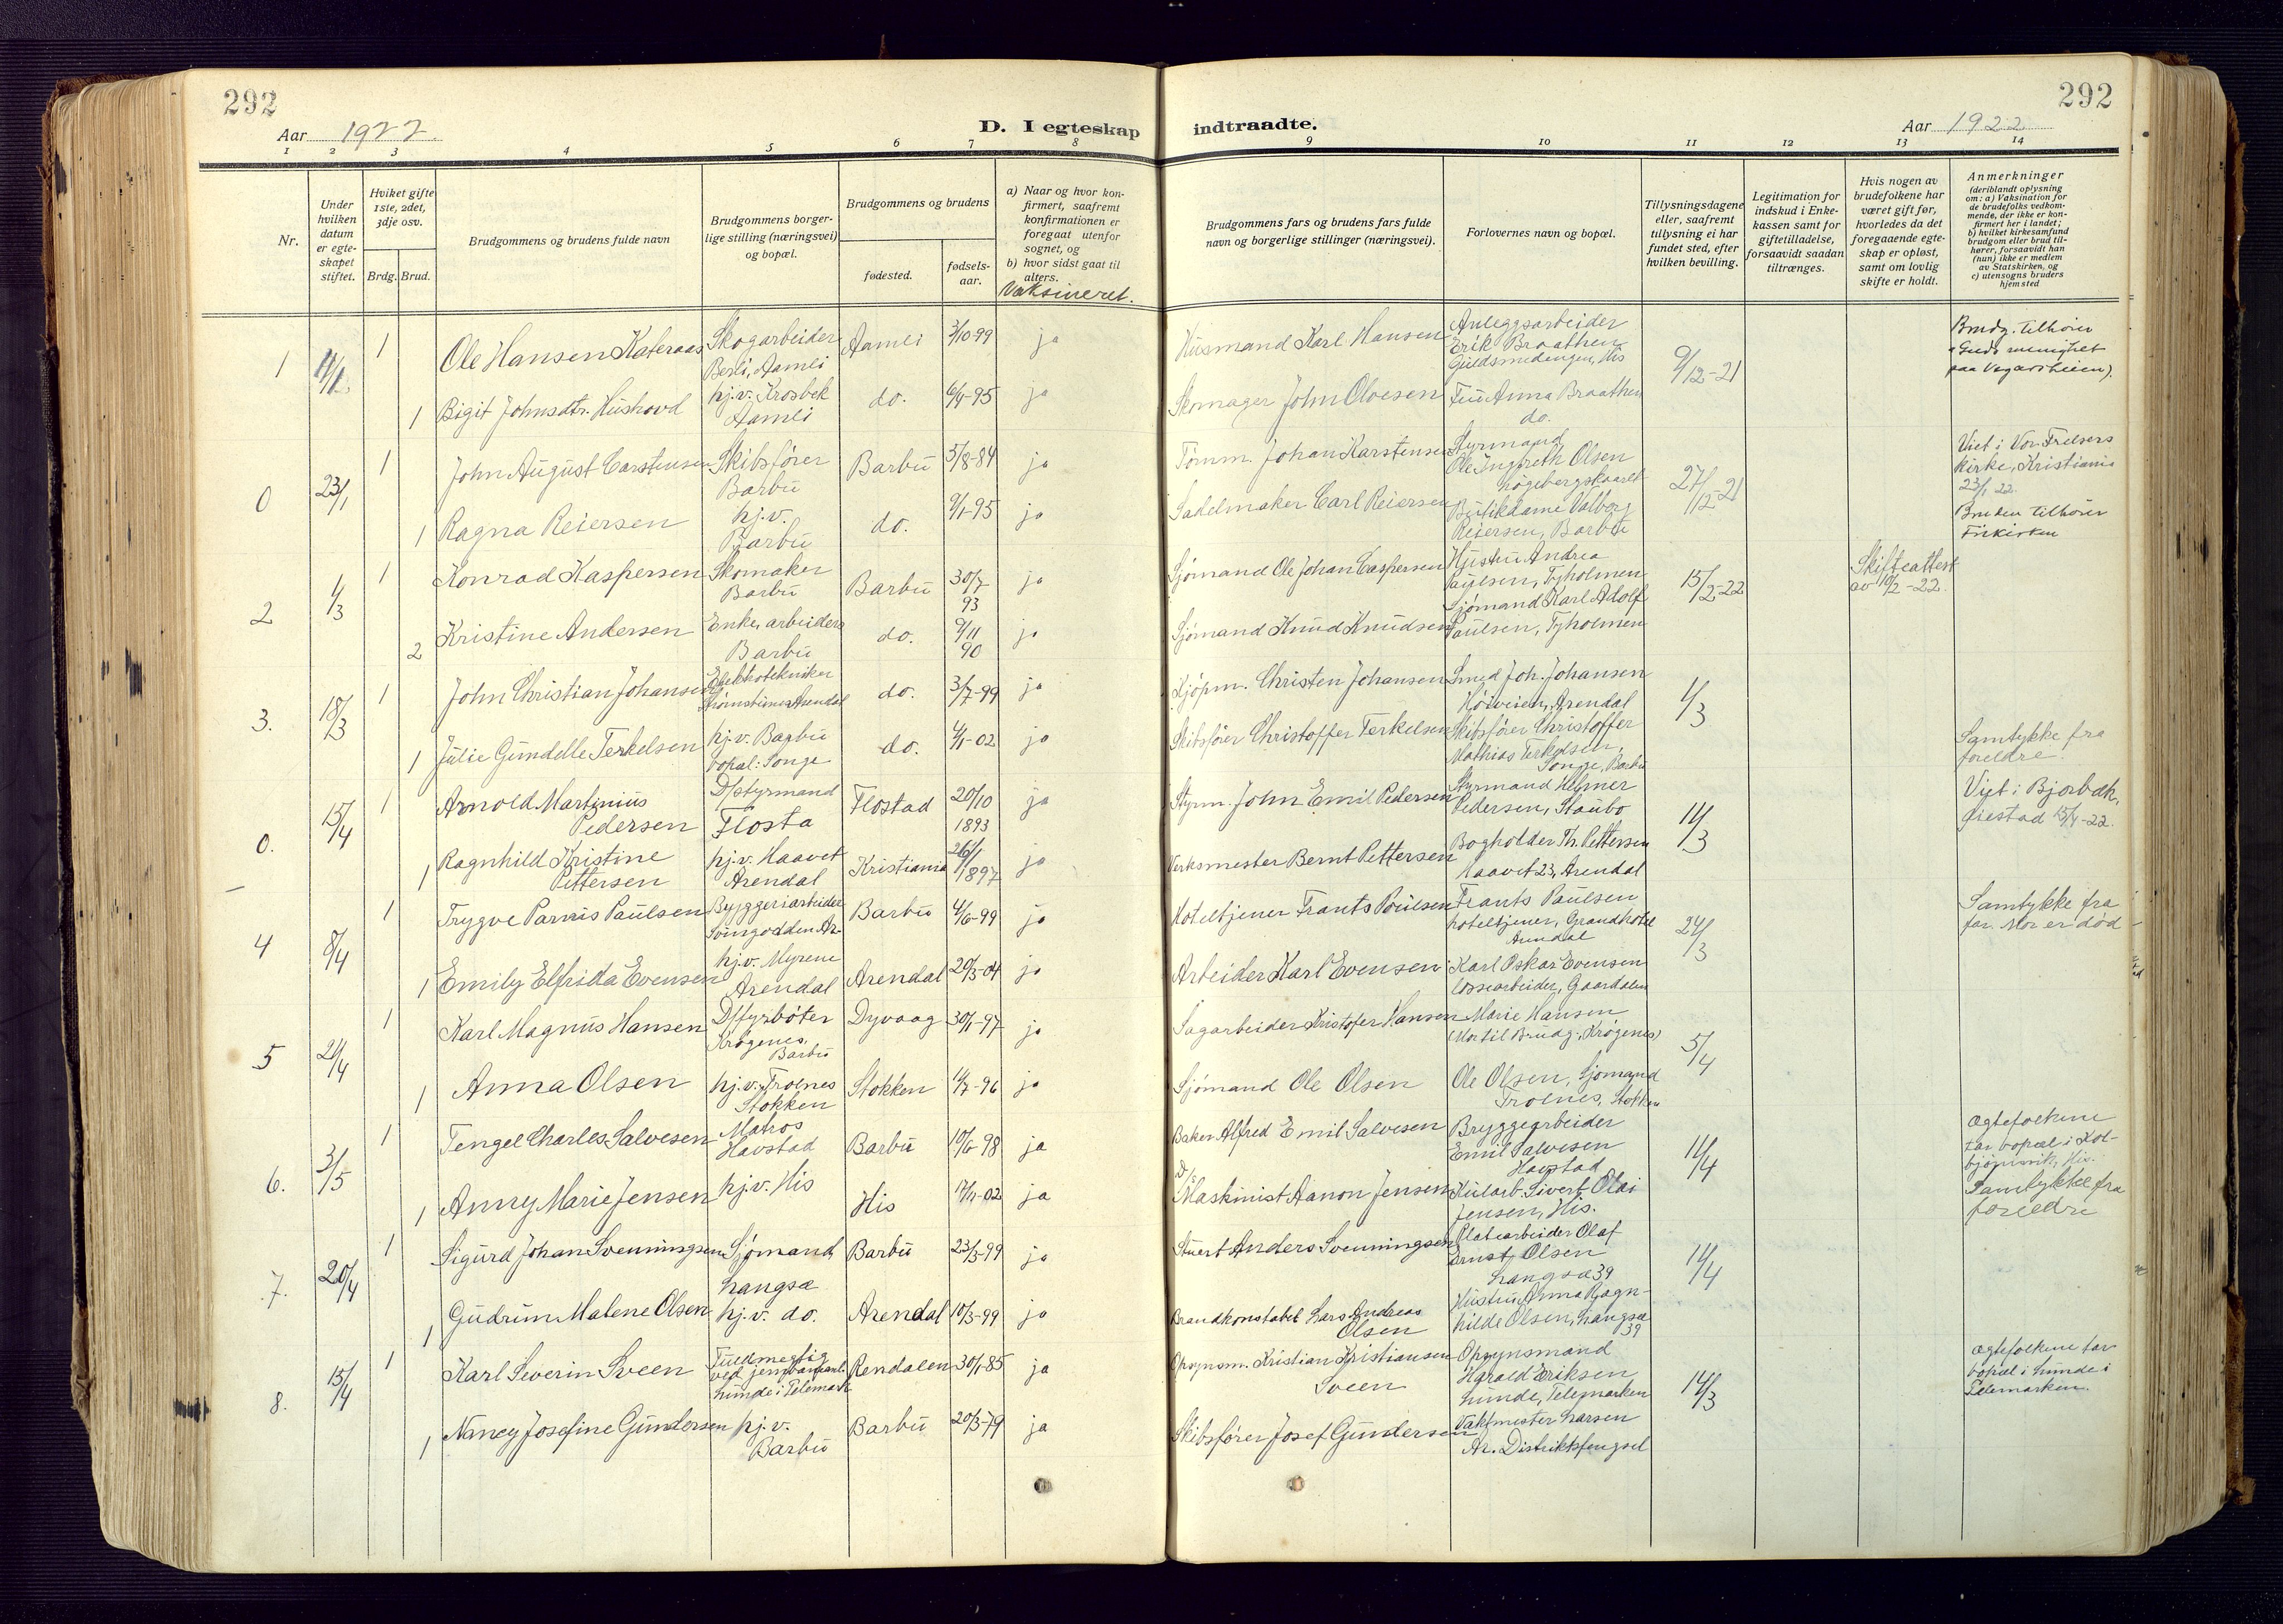 292
292
Aar 1922
D. I egteskap indtraadte.
Aar 1922
1 2 3 4 5 6 7 8 9 10 11 12 13 14
Nr.
Under hvilken datum er egteskapet stiftet.
Hvilket gifte 1ste, 2det, 3dje osv.
Brdg. Brud.
Brudgommens og brudens fulde navn
Brudgommens borgerlige stilling (næringsvei) og bopæl.
Brudgommens og brudens
fødested.
fødselsaar.
a) Naar og hvor konfirmert, saafremt konfirmationen er foregaat utenfor sognet, og
b) hvor sidst gaat til alters.
Vaksineret.
Brudgommens fars og brudens fars fulde navn og borgerlige stillinger (næringsvei).
Forlovernes navn og bopæl.
Tillysningsdagene eller, saafremt tillysning ei har fundet sted, efter hvilken bevilling.
Legitimation for indskud i Enkekassen samt for giftetilladelse, forsaavidt saadan tiltrænges.
Hvis nogen av brudefolkene har været gift før, hvorledes da det foregaaende egteskap er opløst, samt om lovlig skifte er holdt.
Anmerkninger
(deriblandt oplysning om: a) Vaksination for de brudefolks vedkommende, der ikke er konfirmert her i landet; b) hvilket kirkesamfund brudgom eller brud tilhører, forsaavidt han (hun) ikke er medlem av Statskirken, og c) utensogns bruders hjemsted
1 1 Ole Hansen Kateraas Skogarbeider Berli, Aamli Aamli 3/10-99 ja Husmand Karl Hansen Anleggsarbeider Erik Braathen Guldsmedengen, His 9/12-21 Brudg. tilhører Guds menighet paa Vegarsheien).
1 Bigit Johnsdtr. Hushovd hj.v. Krosbek Aamli do. 6/4-95 ja Skomager John Olvesen Fru Anna Braathen do.
0 23/1 1 John August Carstensen Skibsfører Barbu Barbu 5/8-84 ja Tømm. Johan Karstensen Styrmand Ole Ingbreth Olsen 27/12-21 Viet i Vor Frelsers kirke, Kristiania 23/1 22.
1 Ragna Reiersen hj.v. Barbu do. 9/1-95 ja Sadelmaker Carl Reiersen Butikdame Valborg Reiersen, Barbu Bruden tilhører Frikirken
2 1/3 1 Konrad Kaspersen Skomaker Barbu Barbu 30/7 93 ja Sjømand Ole Johan Caspersen Hustru Andrea Paulsen, Tyholmen 15/2-22 Skifteattest av 10/2-22.
2 Kristine Andersen Enke, arbeiders Barbu do. 9/11 90 ja Sjømand Knud Knudsen Sjømand Karl Adolf Paulsen, Tyholmen
3. 18/3 1 John Christian Johansen Elektrotekniker Arendal do. 3/7-99 ja Kjøpm. Christen Johansen Smed Joh. Johansen Høiveien, Arendal 1/3
1 Julie Gundelle Terkelsen hj.v. Barbu bopæl: Songe do. 4/1-02 ja Skibsfører Christoffer Terkelsen Skibsfører Christoffer Mathias Terkelsen, Songe, Barbu Samtykke fra foreldre.
0. 15/4 1 Arnold Martinius Pedersen D/styrmand Flosta Flostad 20/10 1893 ja Styrm. John Emil Pedersen Styrmand Helmer Pedersen, Staubo 14/3 Viet i Bjorbæk, Øiestad 15/4-22.
1 Ragnhild Kristine Pettersen hj.v. Haavet Arendal Kristiania 26/1 1897 ja Verksmester Bernt Pettersen Bogholder Th. Pettersen Haavet 23, Arendal
4 8/4 1 Trygve Parnis Paulsen Byggeriarbeider Svingodden Ar. Barbu 4/6-99 ja Hoteltjener Frants Poulsen Frants Paulsen hoteltjener, Grandhotel Arendal 24/3 Samtykke fra far. Mor er død
1 Emily Elfrida Evensen hj.v. Myrene Arendal Arendal 20/3-04 ja Arbeider Karl Evensen Karl Oskar Evensen lossearbeider, Gaardalen
5 21/4 1 Karl Magnus Hansen D/fyrbøter Krøgenes, Barbu Dyvaag 30/1-97 ja Sagarbeider Kristofer Hansen Marie Hansen (Mor til Brudg. Krøgenes) 5/4
1 Anna Olsen hj.v. Trolnes Stokken Stokken 14/7-96 ja Sjømand Ole Olsen Ole Olsen, Sjømand Trolnes, Stokken
6. 3/5 1 Tengel Charles Salvesen Matros Havstad Barbu 10/6-98 ja Baker Alfred Emil Salvesen Bryggearbeider Emil Salvesen Havstad 14/4 Ægtefolkene tar bopæl i Kolbjørnsvik, His.
1 Anny Marie Jensen hj.v. His His 17/11-02 ja D/s Maskinist Aanon Jensen Kularb. Sivert Olai Jensen, His. Samtykke fra foreldre
7. 20/4 1 Sigurd Johan Svenningsen Sjømand Langsæ Barbu 23/3-99 ja Stuert Anders Svenningsen Platearbeider Olaf Ernst Olsen Langsæ 39 14/4
1 Gudrun Malene Olsen hj.v. do. Arendal 10/3-99 ja Brandkonstabel Lars Andreas Olsen Hustru Anna Ragnhilde Olsen, Langsæ 39
8. 15/4 1 Karl Severin Sveen Fuldmegtig ved jernbaneanl. Lunde i Telemark Rendalen 30/1-85 ja Opsynsm. Kristian Kristiansen Sveen Opsynsmand Harald Eriksen Lunde, Telemarken 14/3 Ægtefolkene tar bopæl i Lunde i Telemarken.
1 Nancy Josefine Gundersen hj.v. Barbu Barbu 20/3-79 ja Skibsfører Josef Gundersen Vaktmester Larsen Ar. Distriktsfengsel